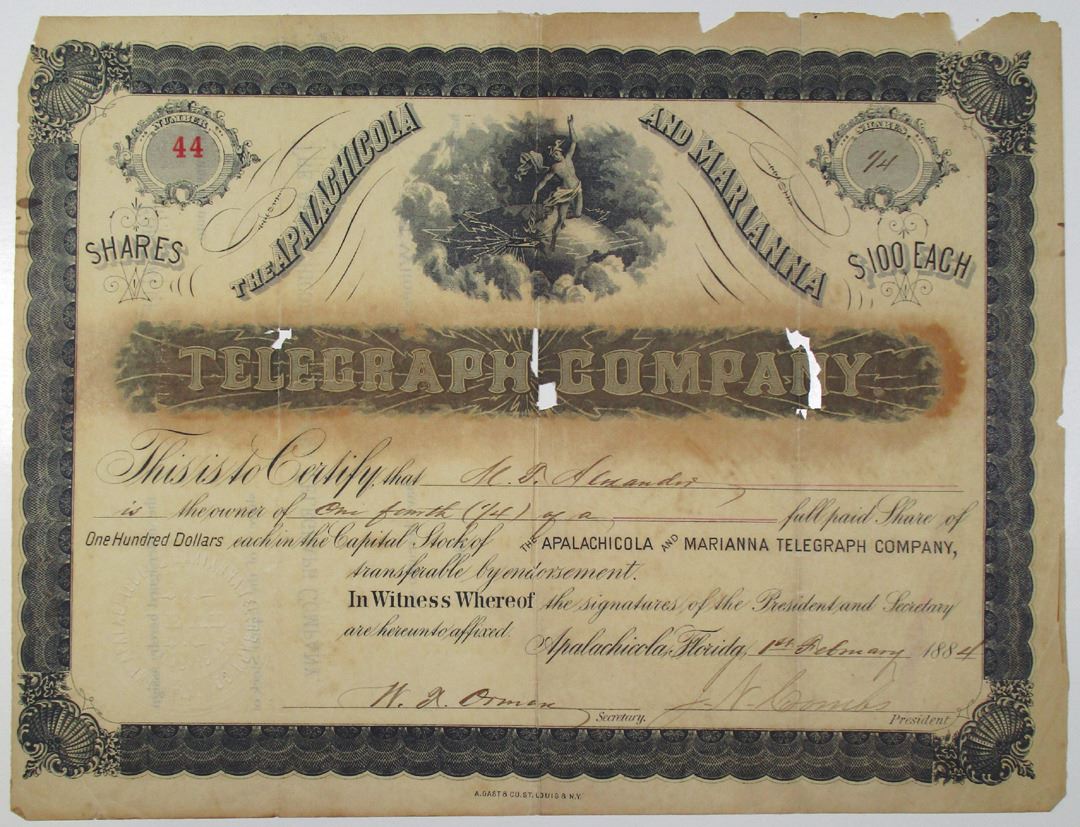 NUMBER
44
THE APALACHICOLA
AND MARIANNA
SHARES
1/4
SHARES
$100 EACH
TELEGRAPH COMPANY
This is to Certify, that M. T. Alexander
is the owner of One fourth (1/4) of a full paid Share of
One Hundred Dollars each in the Capital Stock of THE APALACHICOLA AND MARIANNA TELEGRAPH COMPANY,
transferable by endorsement.
In Witness Whereof the signatures of the President and Secretary
are hereunto affixed.
Apalachicola, Florida, 1st February 1884
W. T. Orman Secretary.
J. N. Coombs President
A. GAST & CO. ST. LOUIS & N.Y.